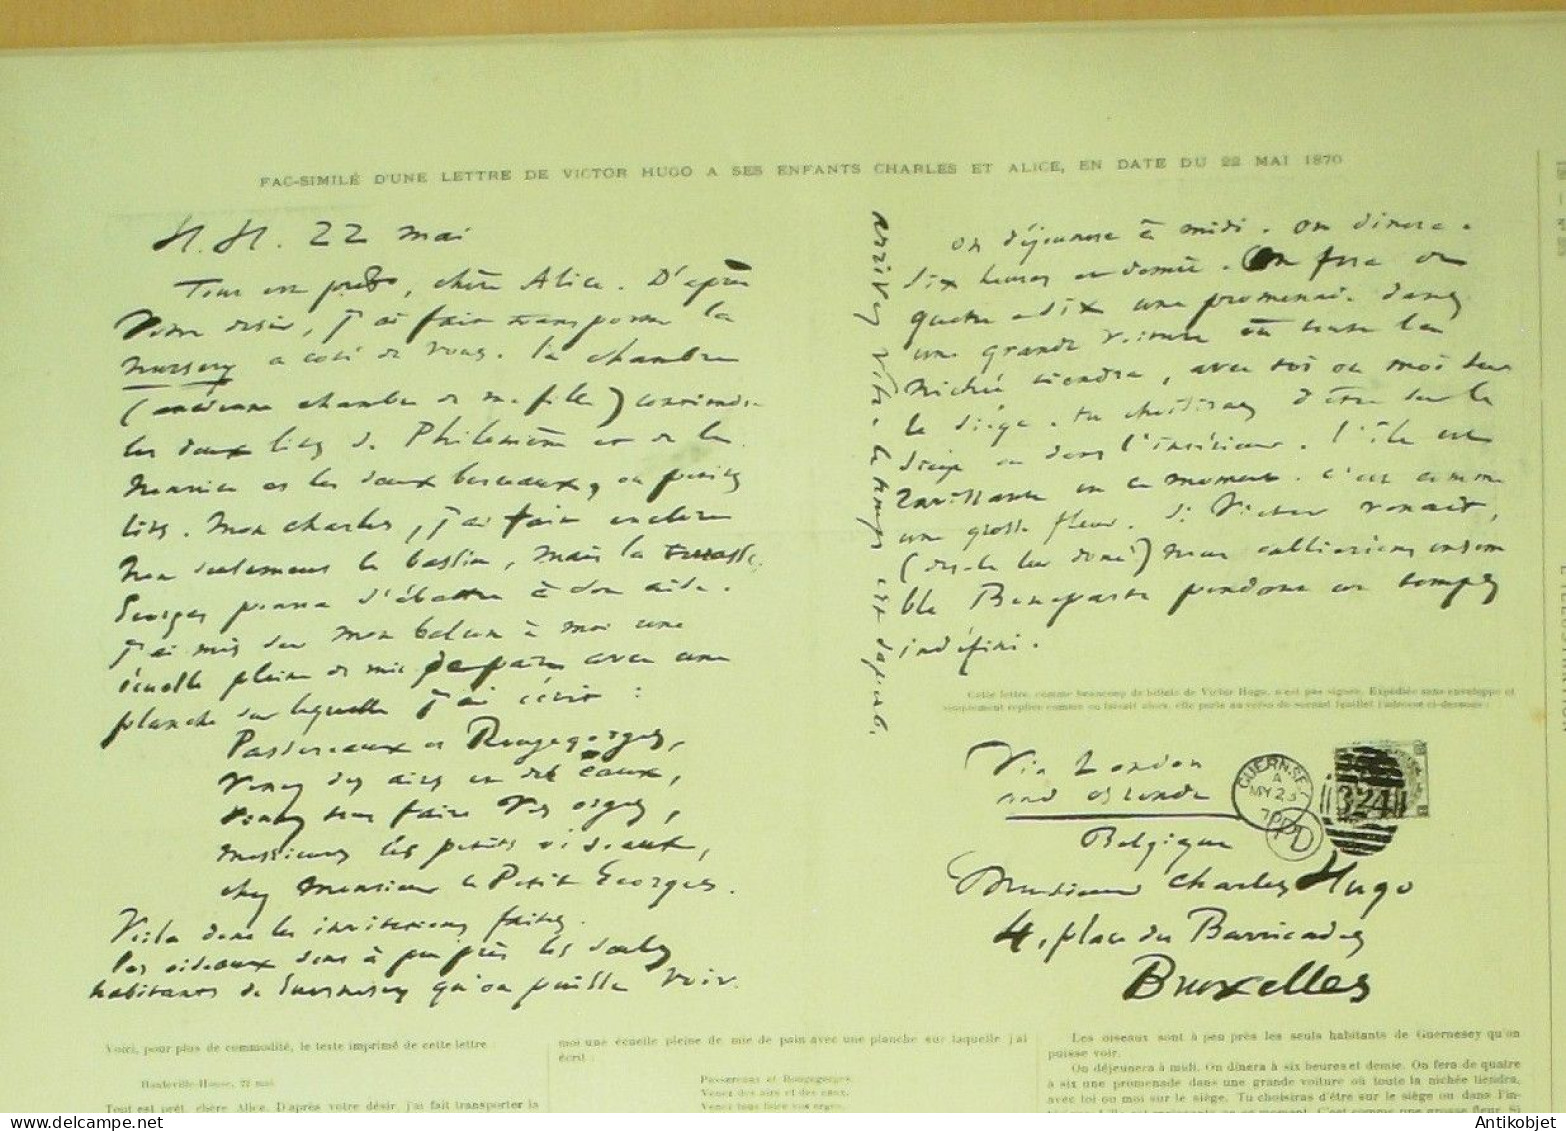 FAC-SIMILÉ D'UNE LETTRE DE VICTOR HUGO A SES ENFANTS CHARLES ET ALICE, EN DATE DU 22 MAI 1870
H. H. 22 mai
Tout est prêt, chère Alice. D'après
Votre désir, j'ai fait transporter la
nursery à côté de vous. la chambre
(ancienne chambre de ma fille) contiendra
les deux lits de Philomène et de la
nourrice et les deux berceaux, ou petits
lits. Mon Charles, j'ai fait enclore
non seulement le bassin, mais la terrasse.
Georges pourra s'ébattre à son aise.
j'ai mis sur mon balcon à moi une
écuelle pleine de mie de pain avec une
planche sur laquelle j'ai écrit :
Passereaux et Rougegorges,
Venez des airs et des eaux,
Venez tous faire vos orges,
Messieurs les petits oiseaux,
chez Monsieur le Petit Georges.
Voilà donc les invitations faites.
les oiseaux sont à peu près les seuls
habitants de Guernesey qu'on puisse voir.
on déjeunera à midi. on dînera à
six heures et demie. On fera de
quatre à six une promenade dans
une grande voiture où toute la
nichée tiendra, avec toi ou moi sur
le siège. tu choisiras d'être sur le
siège ou dans l'intérieur. l'île est
ravissante en ce moment. c'est comme
une grosse fleur. Si Victor venait,
(dis-le lui donc) nous oublierions ensem
ble Bonaparte pendant un temps
indéfini.
arrivez vite. le temps est superbe.
Cette lettre, comme beaucoup de billets de Victor Hugo, n'est pas signée. Expédiée sans enveloppe et
simplement repliée comme on faisait alors, elle porte au verso du second feuillet l'adresse ci-dessous :
Via London
and ostende
GUERNSEY
A
MY 23
70
PD
324
Belgique
Monsieur Charles Hugo
4, place des Barricades
Bruxelles
Voici, pour plus de commodité, le texte imprimé de cette lettre
Hauteville-House, 22 mai
Tout est prêt, chère Alice. D'après votre désir, j'ai fait transporter la
moi une écuelle pleine de mie de pain avec une planche sur laquelle j'ai
écrit :
Passereaux et Rougegorges,
Venez des airs et des eaux,
Venez tous faire vos orges,
Les oiseaux sont à peu près les seuls habitants de Guernesey qu'on
puisse voir.
On déjeunera à midi. On dînera à six heures et demie. On fera de quatre
à six une promenade dans une grande voiture où toute la nichée tiendra,
avec toi ou moi sur le siège. Tu choisiras d'être sur le siège ou dans l'in-
Antikobjet
© www.delcampe.net